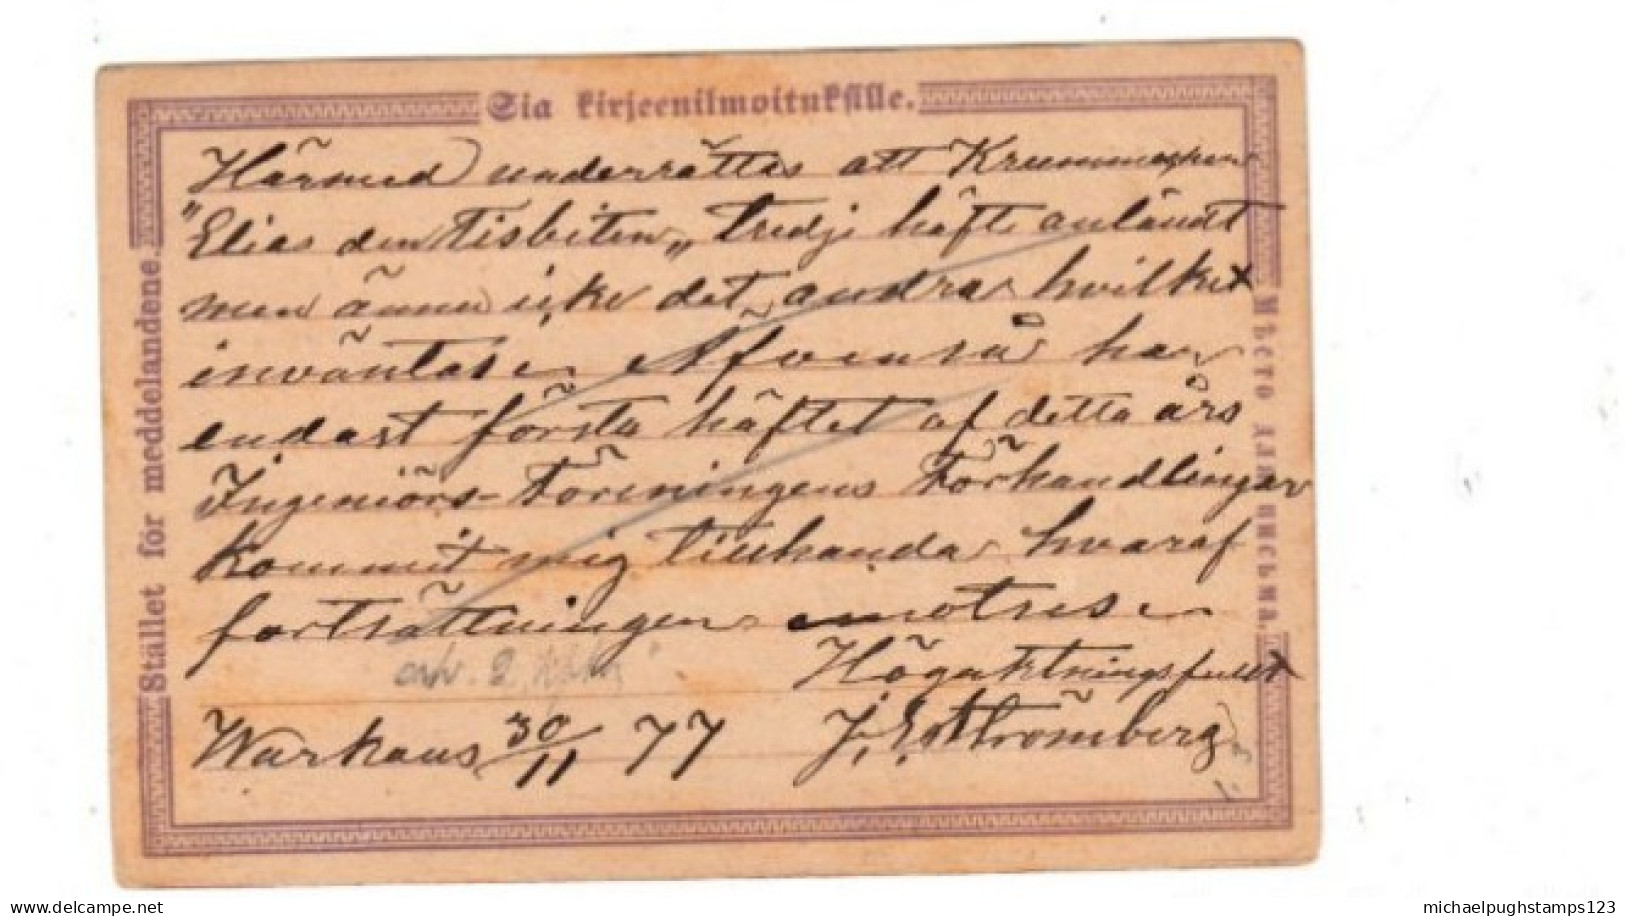 Sia kirjeenilmoituksille.
Stället för meddelandene.
Мѣсто для письма.
Härmed underrättas att Krummacher
"Elias den Tisbiten„ tredje häfte anländt
men ännu icke det andra hvilket
inväntas. Äfvenså har
endast första häftet af detta års
Ingeniörs-Föreningens Förhandlingar
kommit mig tillhanda hvaraf
fortsättningen emotses.
Högaktningsfullt
Warkaus 30/11 77 J. E. Strömberg
michaelpughstamps123